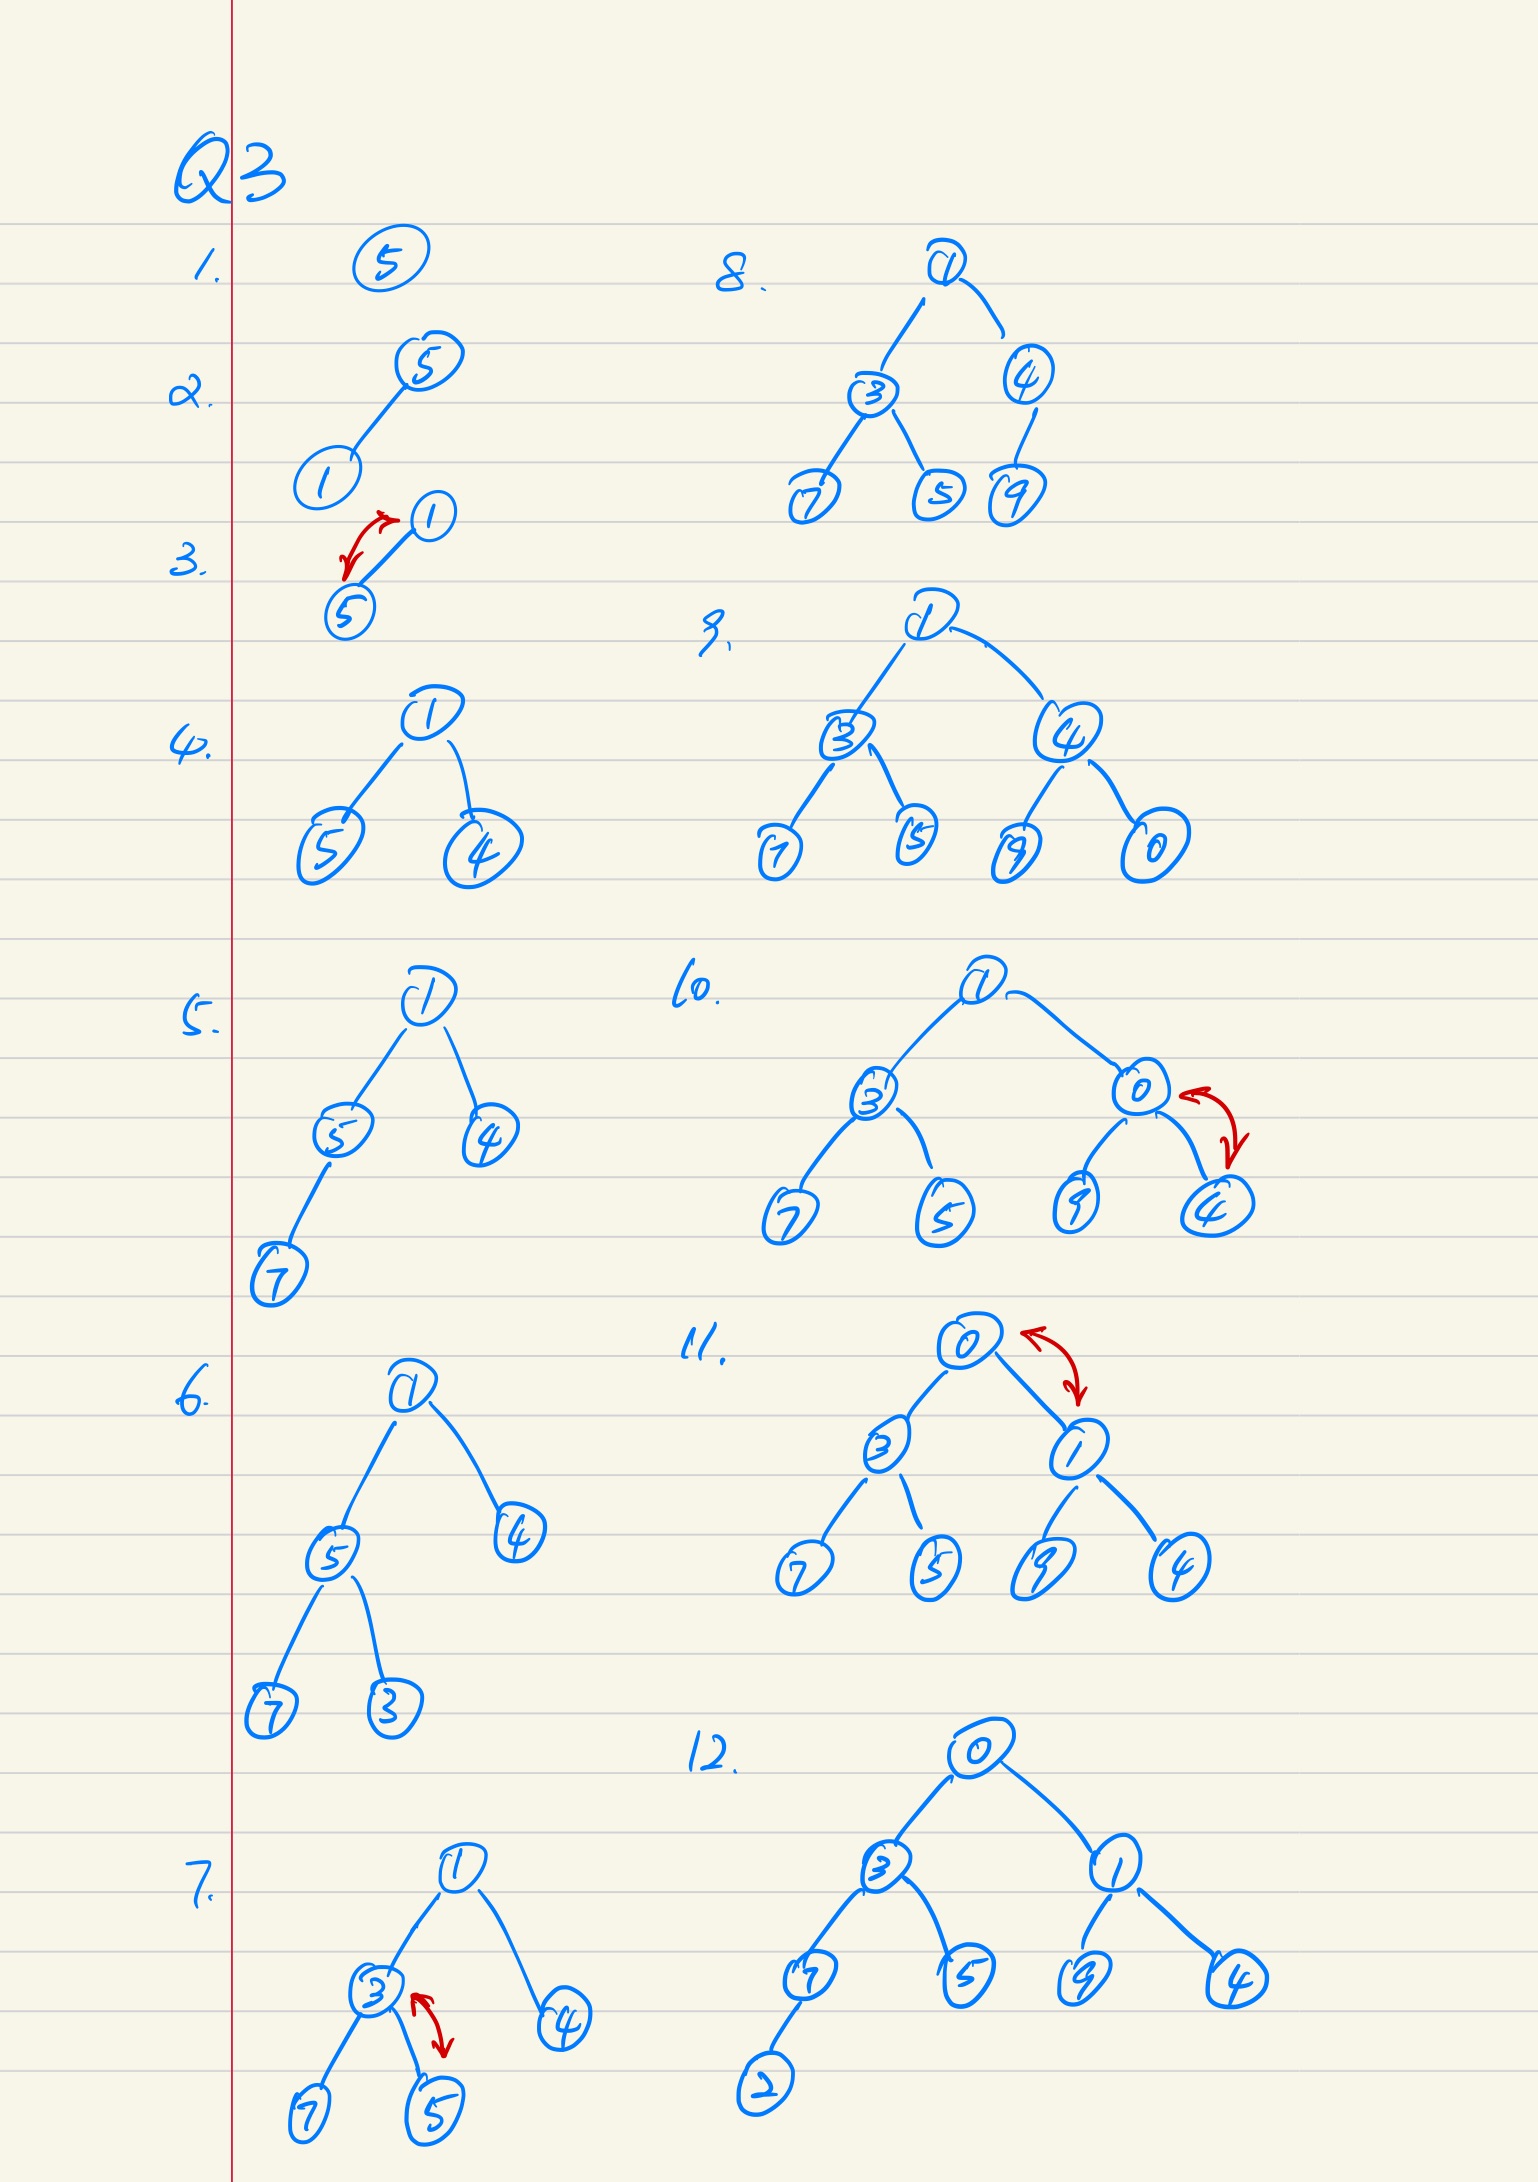 Q3
1.
5
2.
5
1
3.
1
5
4.
1
5 4
5.
1
5 4
7
6.
1
5 4
7 3
7.
1
3 4
7 5
8.
1
3 4
7 5 9
9.
1
3 4
7 5 9 0
10.
1
3 0
7 5 9 4
11.
0
3 1
7 5 9 4
12.
0
3 1
7 5 9 4
2